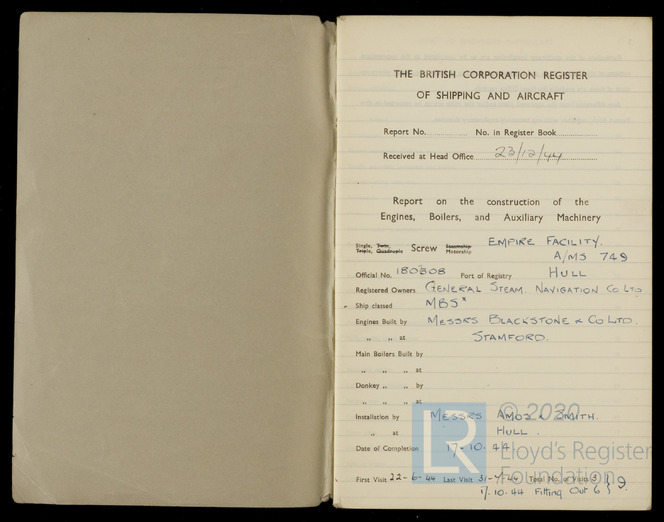 THE BRITISH CORPORATION REGISTER
OF SHIPPING AND AIRCRAFT
Report No. No. in Register Book
Received at Head Office 23/12/44
Report on the construction of the
Engines, Boilers, and Auxiliary Machinery
Single, Twin, Triple, Quadruple Screw Steamship Motorship EMPIRE FACILITY.
A/MS 749
Official No. 180808 Port of Registry HULL
Registered Owners GENERAL STEAM NAVIGATION CO LTD
Ship classed MBS*
Engines Built by MESSRS BLACKSTONE & CO LTD.
„ „ at STAMFORD.
Main Boilers Built by
„ „ „ at
Donkey „ „ by
„ „ „ at
Installation by MESSRS AMOS & SMITH.
„ at HULL.
Date of Completion 17-10-44
First Visit 22-6-44 Last Visit Total No. of Visits 3 } 9.
17.10.44 Fitting Out 6
© 2020
LR Lloyd's Register
Foundation